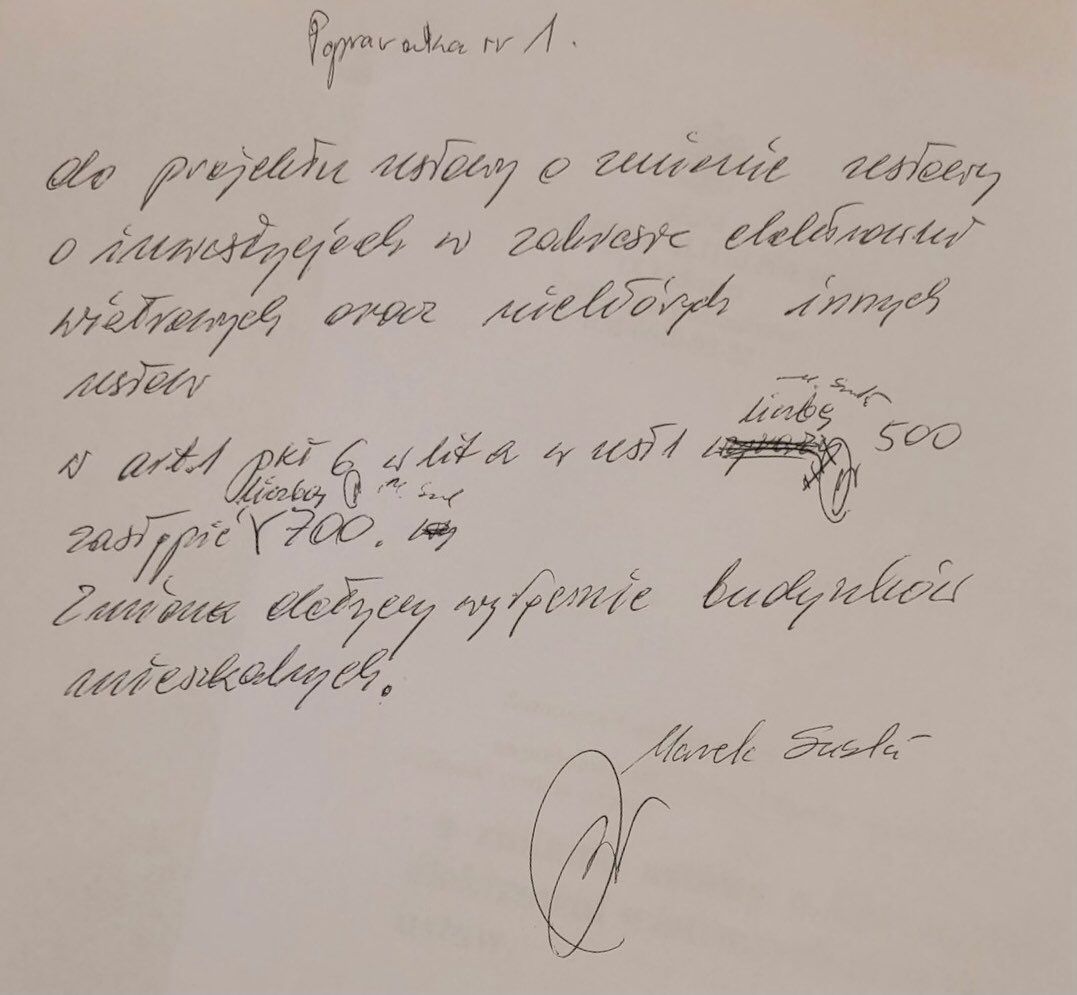 Poprawka nr 1.
do projektu ustawy o zmianie ustawy
o inwestycjach w zakresie elektrowni
wiatrowych oraz niektórych innych
ustaw
liczbę
w art. 1 pkt 6 w lit a w ust 1 500
liczbą
zastąpić 700.
Zmiana dotyczy wyłącznie budynków
mieszkalnych.
Marek Suski